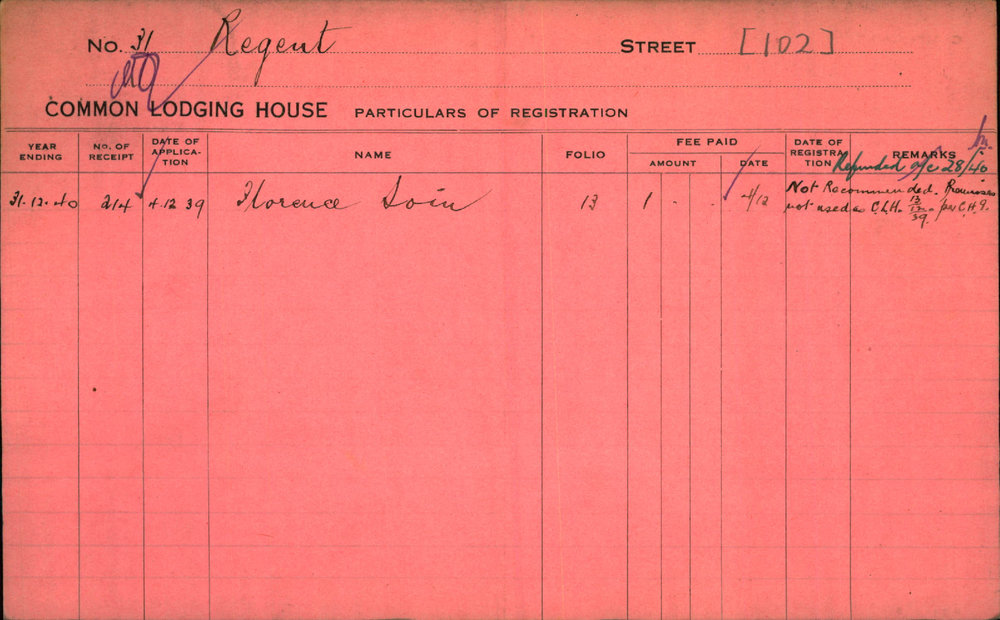 No. 31 Regent STREET [102]
COMMON LODGING HOUSE PARTICULARS OF REGISTRATION
YEAR ENDING NO. OF RECEIPT DATE OF APPLICA-TION NAME FOLIO FEE PAID AMOUNT DATE DATE OF REGISTRA-TION REMARKS
Refunded a/c 28/40
31.12.40 214 4.12.39 Florence Soin 13 1 - - 4/12 Not Recommended. Premises
not used as C.L.H. 13/12/39. per C.H.I.